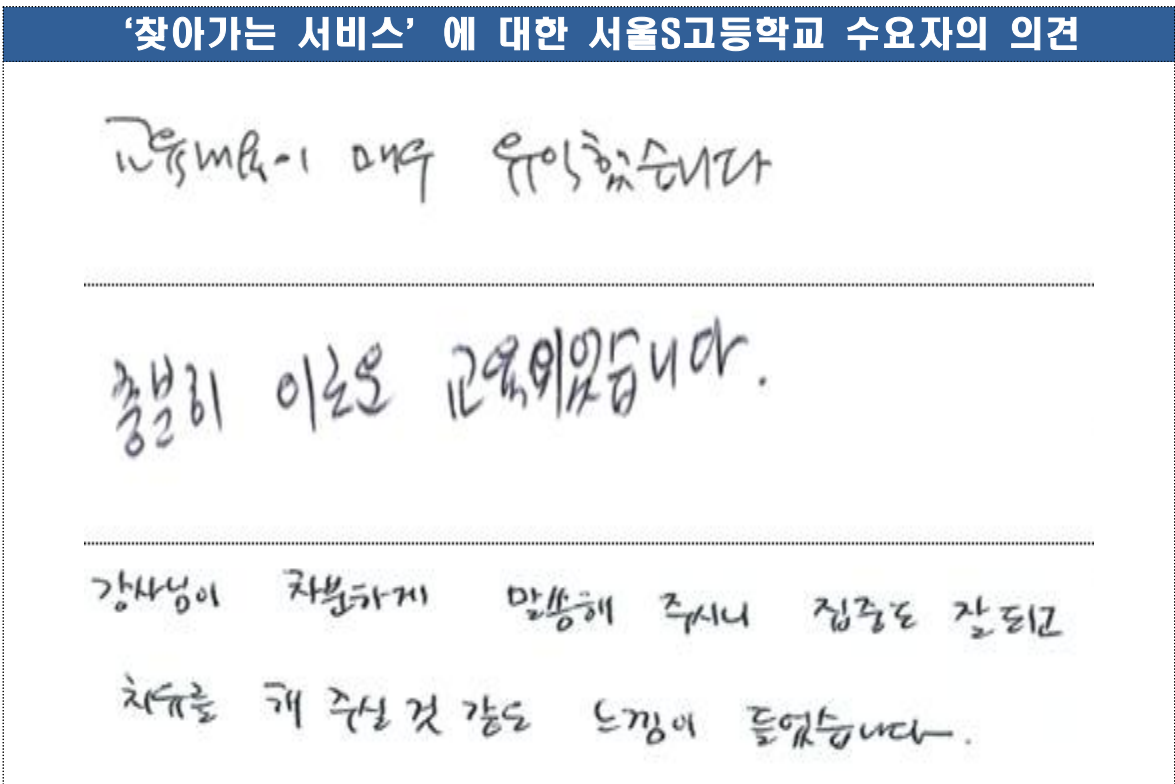 ‘찾아가는 서비스’ 에 대한 서울S고등학교 수요자의 의견
교육내용이 매우 유익했습니다
충분히 이로운 교육이었습니다.
강사님이 차분하게 말씀해 주시니 집중도 잘 되고
치유를 해 주실 것 같은 느낌이 들었습니다.